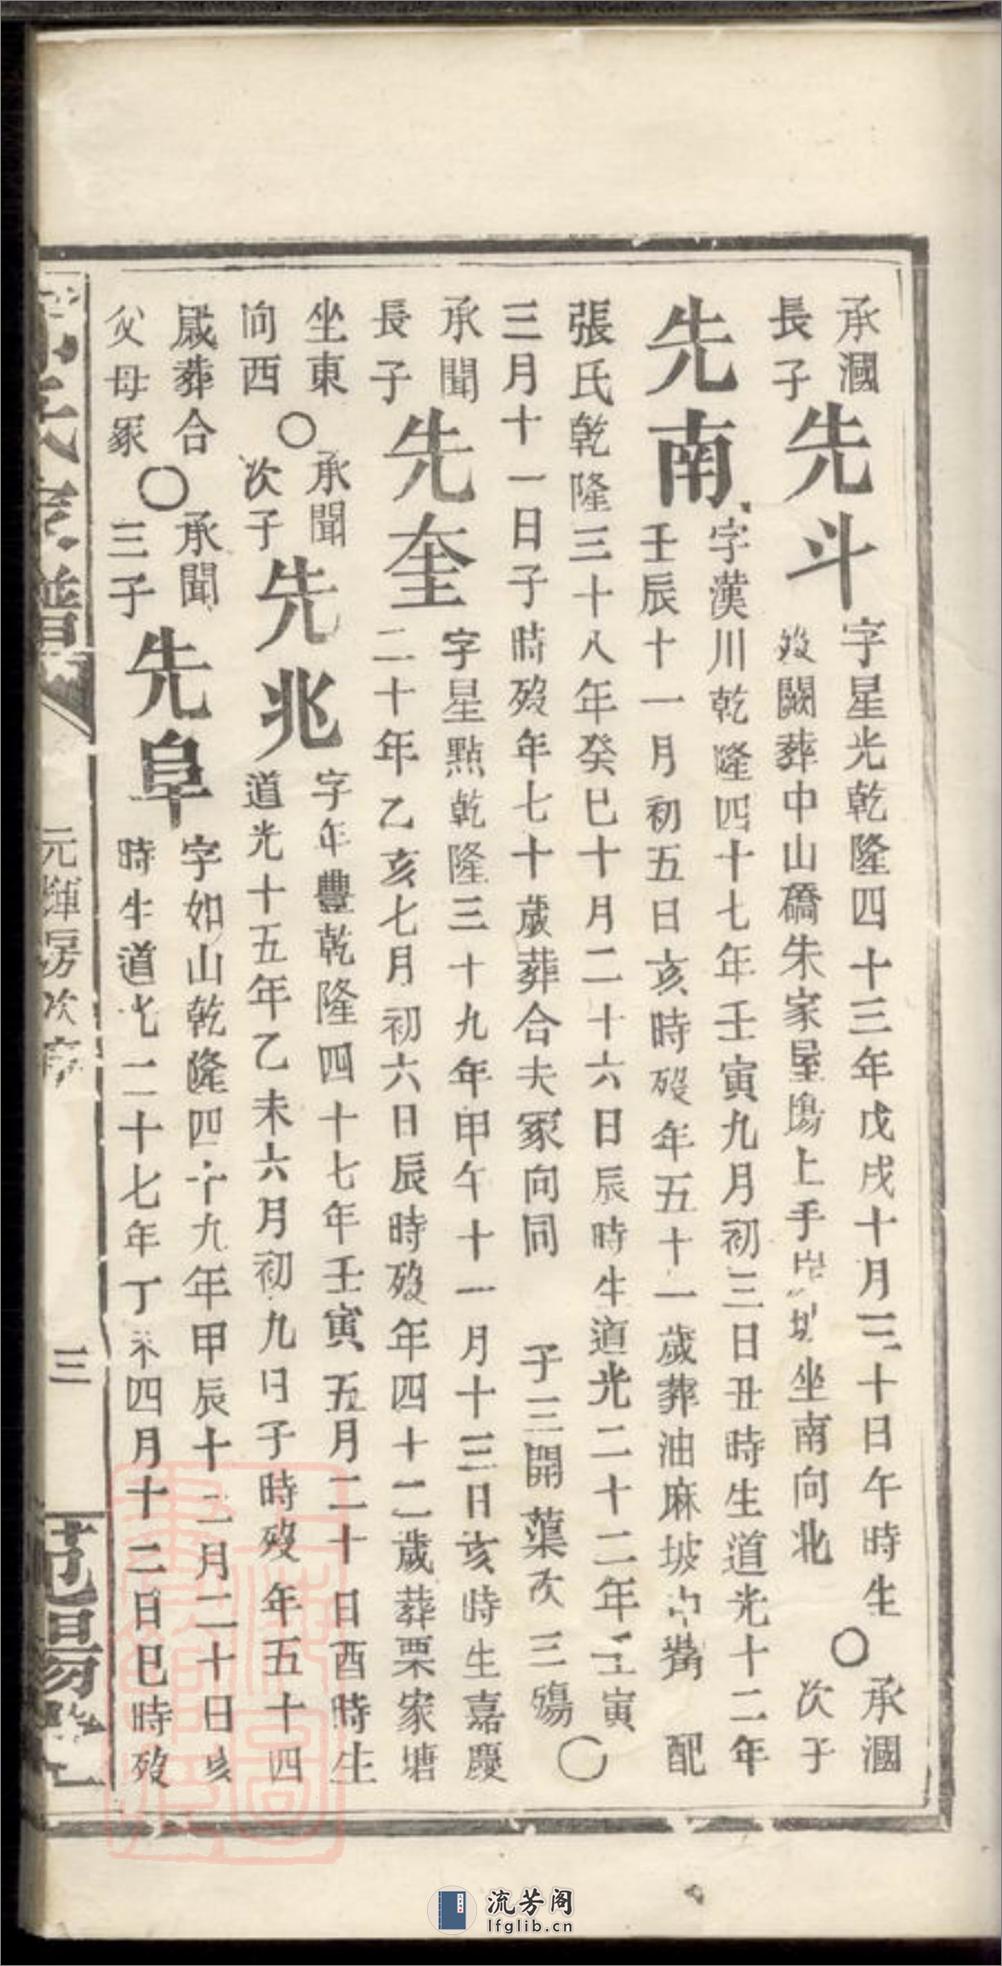 承涸
長子
先斗
字星光乾隆四十三年戊戌十月三十日午時生
歿闕葬中山礄朱家屋塲上手坐南向北
○
承涸
次子
先南
字漢川乾隆四十七年壬寅九月初三日丑時生道光十二年
壬辰十一月初五日亥時歿年五十一歲葬油麻坡 配
張氏乾隆三十八年癸巳十月二十六日辰時生道光二十二年壬寅
三月十一日子時歿年七十歲葬合夫冢向同 子三開蕖次三殤
○
承聞
長子
先奎
字星點乾隆三十九年甲午十一月十三日亥時生嘉慶
二十年乙亥七月初六日辰時歿年四十二歲葬栗家塘
坐東
向西
○
承聞
次子
先兆
字年豐乾隆四十七年壬寅五月二十日酉時生
道光十五年乙未六月初九日子時歿年五十四
歲葬合
父母冢
○
承聞
三子
先阜
字如山乾隆四十九年甲辰十二月二十日亥
時生道光二十七年丁未四月十二日巳時歿
氏家譜
元輝房次序
三
流芳阁
lfglib.cn